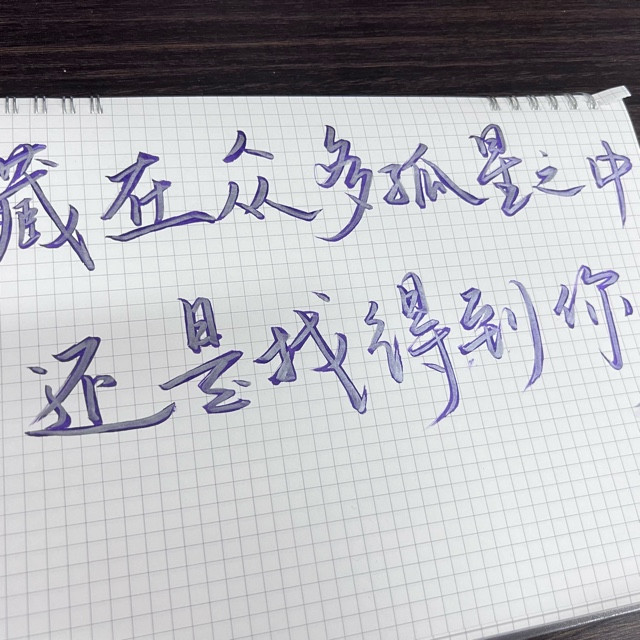 藏在众多孤星之中
还是找得到你